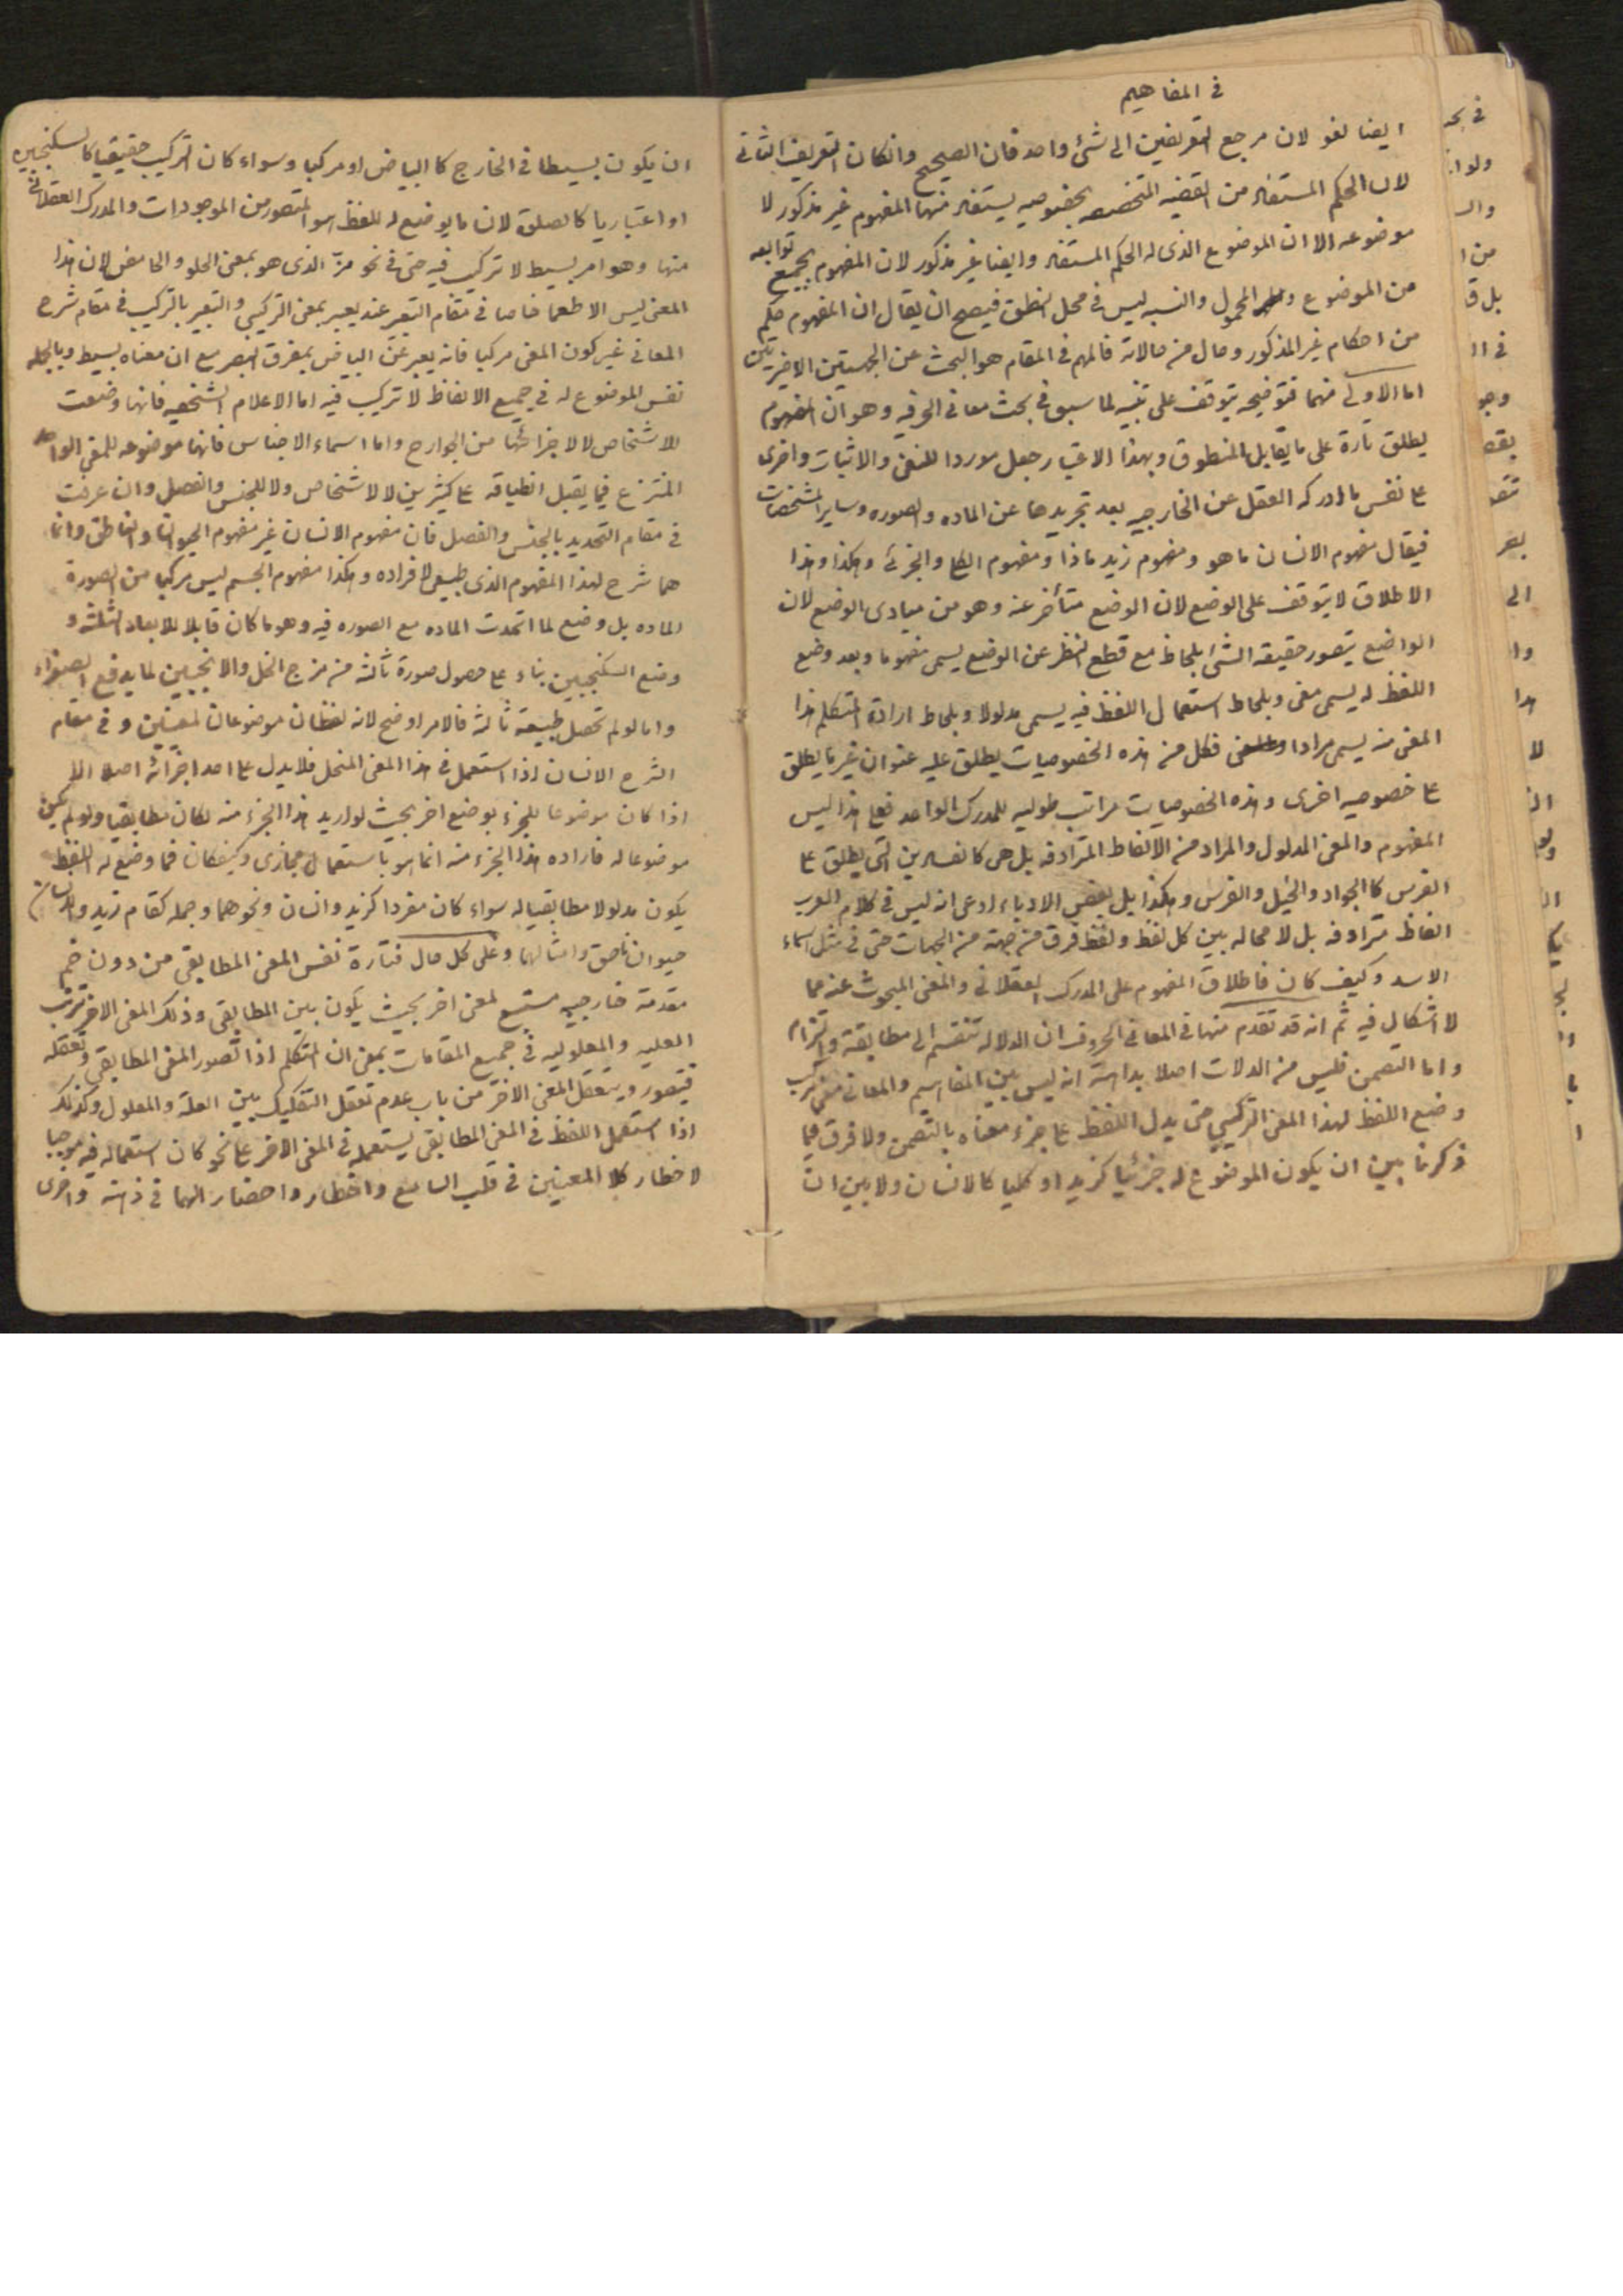 في المفاهيم
ايضا لغو لان مرجع التعريفين الى شئ واحد فان الصحيح وانكان التعريف الثاني
لان الحكم المستفاد من القضيه المتخصصه بخصوصيه يستفاد منها المفهوم غير مذكور لا
موضوعه الا ان الموضوع الذى له الحكم المستفاد وايضا غير مذكور لان المفهوم بجميع توابعه
من الموضوع والمحمول والنسبه ليس في محل النطق فيصح ان يقال ان المفهوم حكم
من احكام غير المذكور وحال من حالاته فالمهم في المقام هو البحث عن الجهتين الاخيرتين
اما الاولى منهما فتوضيحه يتوقف على تنبيه لما سبق في بحث معاني الحرفيه وهو ان المفهوم
يطلق تارة على ما يقابل المنطوق وبهذا الاعتبار جعل موردا للنفي والاثبات واخرى
على نفس ما ادركه العقل عن الخارجيه بعد تجريدها عن الماده والصوره وساير المشخصات
فيقال مفهوم الانسان ما هو ومفهوم زيد ماذا ومفهوم الكلي والجزئي وهكذا وهذا
الاطلاق لا يتوقف على الوضع لان الوضع متأخر عنه وهو من مبادى الوضع لان
الواضع يتصور حقيقه الشئ بلحاظ مع قطع النظر عن الوضع يسمى مفهوما وبعد وضع
اللفظ له يسمى معنى وبلحاط استعمال اللفظ فيه يسمى مدلولا وبلحاط ارادة المتكلم هذا
المعنى منه يسمى مرادا فكل من هذه الخصوصيات يطلق عليه عنوان غير ما يطلق
على خصوصيه اخرى وهذه الخصوصيات مراتب طوليه للمدرك الواحد فعلى هذا ليس
المفهوم والمعنى المدلول والمراد من الالفاظ المترادفه بل هي كالتى يطلق على
الفرس كالجواد والخيل والفرس وهكذا بل بعض الادباء ادعى انه ليس في كلام العرب
الفاظ مترادفه بل لا محاله بين كل لفظ ولفظ فرق من جهة من الجهات حتى في مثل اسماء
الاسد وكيف كان فاطلاق المفهوم على المدرك العقلاني والمعنى المبحوث عنه مما
لا اشكال فيه ثم انه قد تقدم منها في المعاني الحروف ان الدلاله تنقسم الى مطابقة والتزام
واما التضمن فليس من الدلات اصلا بداهة انه ليس بين المفاهيم والمعاني معنى مركب
وضع اللفظ لهذا المعنى التركيبي حتى يدل اللفظ على جزء معناه بالتضمن ولا فرق فيما
ذكرنا بين ان يكون الموضوع له جزئيا كزيد او كليا كالانسان ولا بين ان
ان يكون بسيطا في الخارج كالبياض او مركبا وسواء كان التركيب حقيقيا كالسكنجبين
او اعتباريا كالصلوة لان ما يوضع له اللفظ هو المتصور من الموجودات والمدرك العقلاني
منها وهو امر بسيط لا تركيب فيه حتى في نحو مزّ الذى هو بمعنى الحلو والحامض لان هذا
المعنى ليس الا طعما خاصا في مقام التعبير عنه يعبر بمعنى التركيبي والتعبير بالتركيب في مقام شرح
المعاني غير كون المعنى مركبا فانه يعبر عن البياض بمفرق البصر مع ان معناه بسيط وبالجمله
نفس الموضوع له في جميع الالفاظ لا تركيب فيه اما الاعلام الشخصيه فانها وضعت
للاشخاص لا لاجزائها من الجوارح واما اسماء الاجناس فانها موضوعه للمعنى الواحد
المنتزع فيما يقبل انطباقه على كثيرين لا للاشخاص ولا للجنس والفصل وان عرفت
في مقام التحديد بالجنس والفصل فان مفهوم الانسان غير مفهوم الحيوان والناطق وانما
هما شرح لهذا المفهوم الذى طبيعى لافراده وهكذا مفهوم الجسم ليس مركبا من الصورة
الماده بل وضع لما اتحدت الماده مع الصوره فيه وهو ما كان قابلا للابعاد الثلثة و
وضع السكنجبين بناء على حصول صورة ثالثة من مزج الخل والانجبين لما يدفع الصفراء
واما لو لم تحصل طبيعة ثالثة فالامر اوضح لانه لفظان موضوعان لمعنيين و في مقام
الشرح الانسان اذا استعمل في هذا المعنى المنحل فلا يدل على احد اجزائه اصلا الا
اذا كان موضوعا للجزء بوضع اخر بحيث لو اريد هذا الجزء منه لكان مطابقيا ولو لم يكن
موضوعا له فاراده هذا الجزء منه انما هو باستعمال مجازى وكيفكان فما وضع له اللفظ
يكون مدلولا مطابقيا له سواء كان مفردا كزيد وانسان ونحوهما وجمله كقام زيد والانسان
حيوان ناطق وامثالهما وعلى كل حال فتارة نفس المعنى المطابقى من دون ضم
مقدمة خارجيه مستتبع لمعنى اخر بحيث يكون بين المطابقى وذلك المعنى الاخر ترتب
العليه والمعلوليه في جميع المقامات بمعنى ان المتكلم اذا تصور المعنى المطابقى وتعقله
فيتصور ويتعقل المعنى الاخر من باب عدم تعقل التفكيك بين العلة والمعلول وكذلك
اذا استعمل اللفظ في المعنى المطابقى يستعمله في المعنى الاخر على نحو كان استعماله فيه موجبا
لاخطار كلا المعنيين في قلب السامع واخطار واحضار الهما في ذهنه واخرى